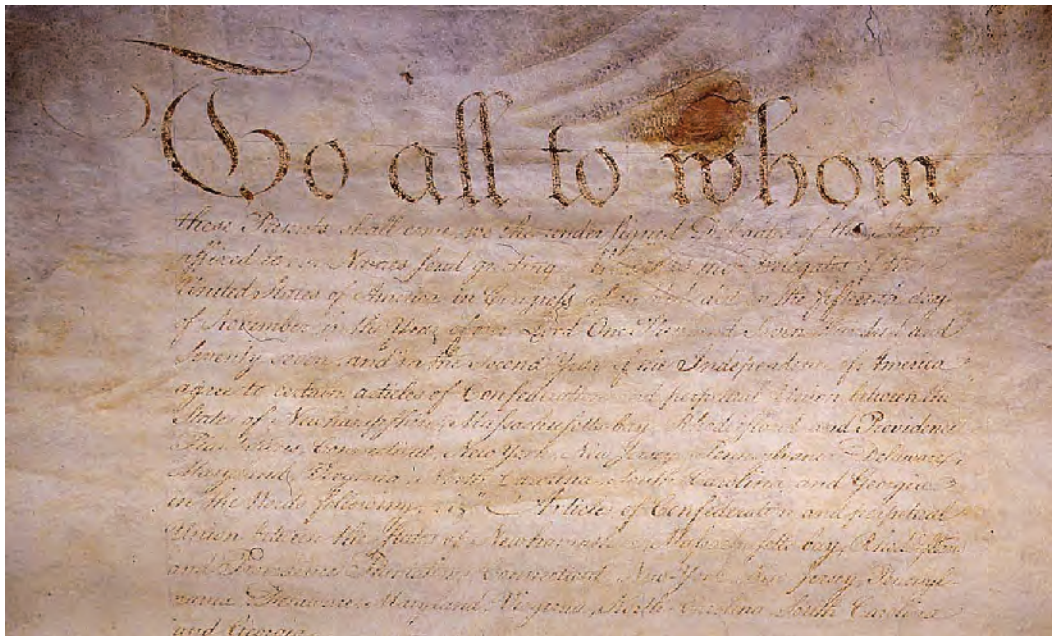 To all to whom
these Presents shall come, we the under signed Delegates of the States
affixed to our Names send greeting. Whereas the Delegates of the
United States of America in Congress assembled did on the fifteenth day
of November in the Year of our Lord One Thousand Seven Hundred and
Seventy seven, and in the Second Year of the Independence of America
agree to certain articles of Confederation and perpetual Union between the
States of Newhampshire, Massachusetts-bay, Rhodeisland and Providence
Plantations, Connecticut, New York, New Jersey, Pennsylvania, Delaware,
Maryland, Virginia, North-Carolina, South-Carolina and Georgia
in the Words following, viz. Articles of Confederation and perpetual
Union between the States of Newhampshire, Massachusetts-bay, Rhodeisland
and Providence Plantations, Connecticut, New-York, New-Jersey, Pennsyl-
vania, Delaware, Maryland, Virginia, North-Carolina, South-Carolina
and Georgia